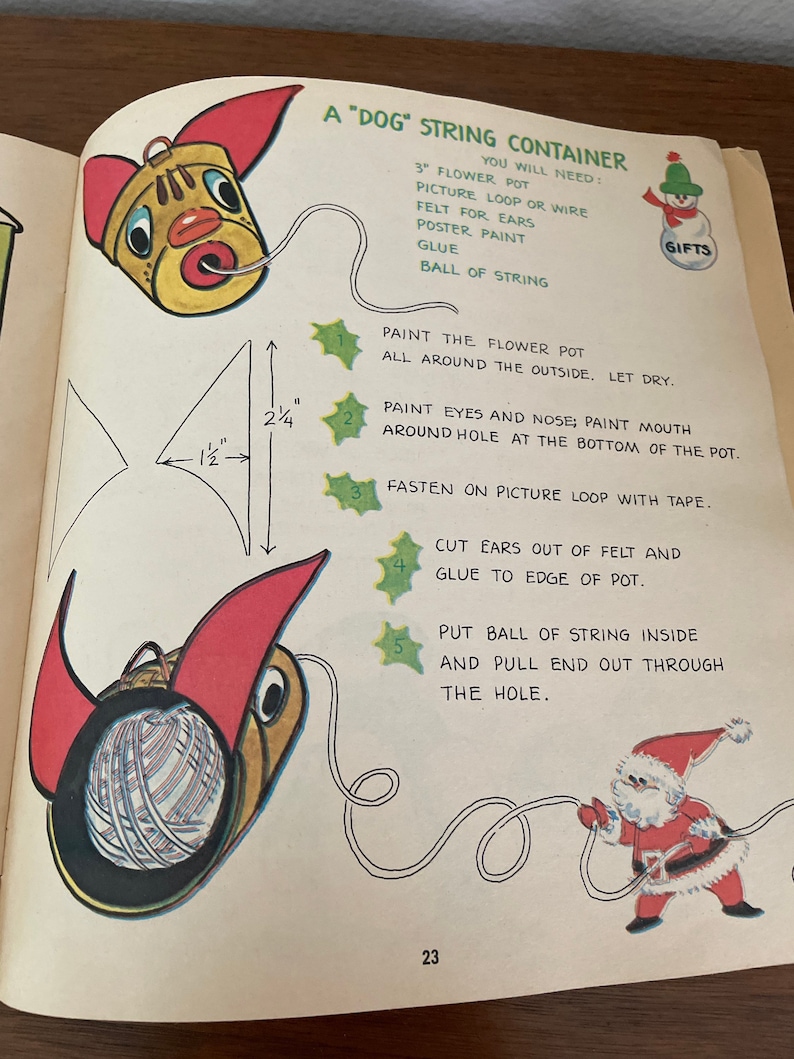 A "DOG" STRING CONTAINER
YOU WILL NEED:
3" FLOWER POT
PICTURE LOOP OR WIRE
FELT FOR EARS
POSTER PAINT
GLUE
BALL OF STRING
GIFTS
1 PAINT THE FLOWER POT
ALL AROUND THE OUTSIDE. LET DRY.
2 PAINT EYES AND NOSE; PAINT MOUTH
AROUND HOLE AT THE BOTTOM OF THE POT.
3 FASTEN ON PICTURE LOOP WITH TAPE.
4 CUT EARS OUT OF FELT AND
GLUE TO EDGE OF POT.
5 PUT BALL OF STRING INSIDE
AND PULL END OUT THROUGH
THE HOLE.
2 1/4"
1 1/2"
23